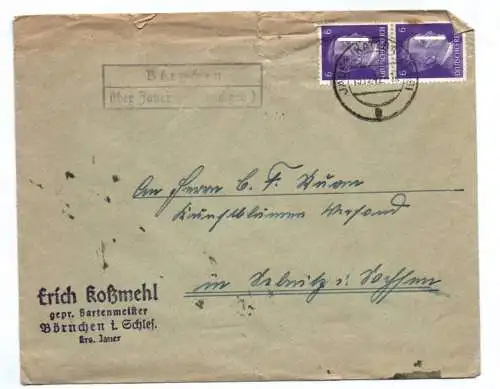 Börnchen
über Jauer
6 DEUTSCHES REICH 6 DEUTSCHES REICH
JAUER
An Herrn C. F.
Kunstblumen Versand
in Sebnitz i. Sachsen
Erich Koßmehl
gepr. Gartenmeister
Börnchen i. Schles.
Krs. Jauer